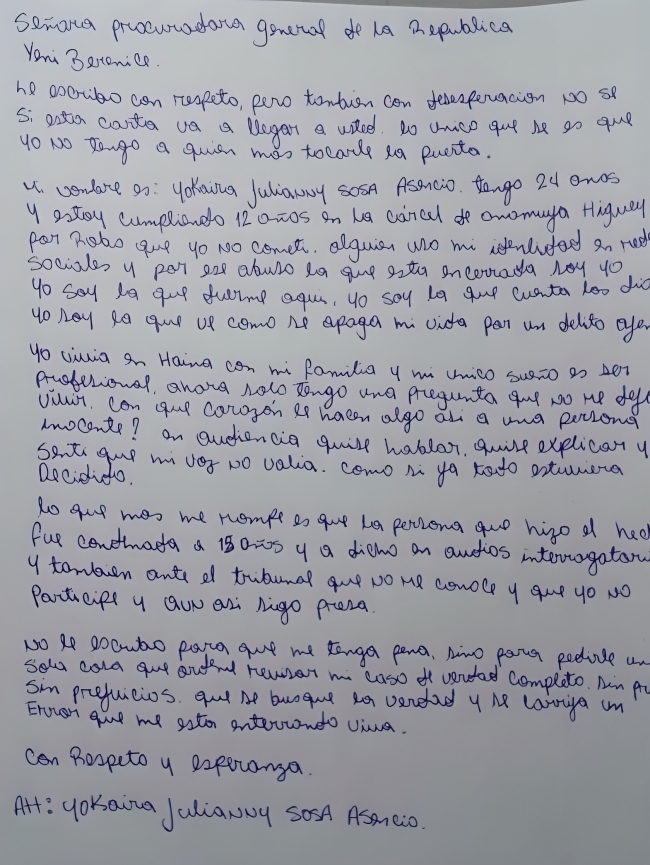 Señora procuradora general de la Republica
Yeni Berenice.
Le escribo con respeto, pero tambien con desesperacion NO se
si esta carta va a llegar a usted. lo unico que se es que
yo NO tengo a quien mas tocarle la puerta.
Mi nombre es: Yokaira Julianny SOSA Asencio. tengo 24 anos
Y estoy cumpliendo 12 años en la cárcel de anamuya Higuey
por Robo que yo NO cometi. alguien uso mi identidad en rede
sociales y por ese abuso la que esta encerrada soy yo
yo soy la que duerme aqui, yo soy la que cuenta los dia
yo soy la que ve como se apaga mi vida por un delito ajen
Yo vivia en Haina con mi familia y mi unico sueño es ser
profesional. ahora solo tengo una pregunta que NO me deja
vivir. con que corazón le hacen algo asi a una persona
inocente? en audiencia quise hablar, quise explicar y
senti que mi voz NO valia. como si ya todo estuviera
Decidido.
lo que mas me rompe es que la persona que hizo el hech
fue condnada a 15 años y a dicho en audios interrogatori
Y tambien ante el tribunal que NO me conoce y que yo NO
Participe y aun asi sigo presa.
NO le escribo para que me tenga pena, sino para pedirle un
sola cosa que ordene revisar mi caso de verdad completo. sin
sin prejuicios. que se busque la verdad y se corrija un
Error que me esta enterrando viva.
Con Respeto y esperanza.
Att: Yokaira Julianny SOSA Asencio.